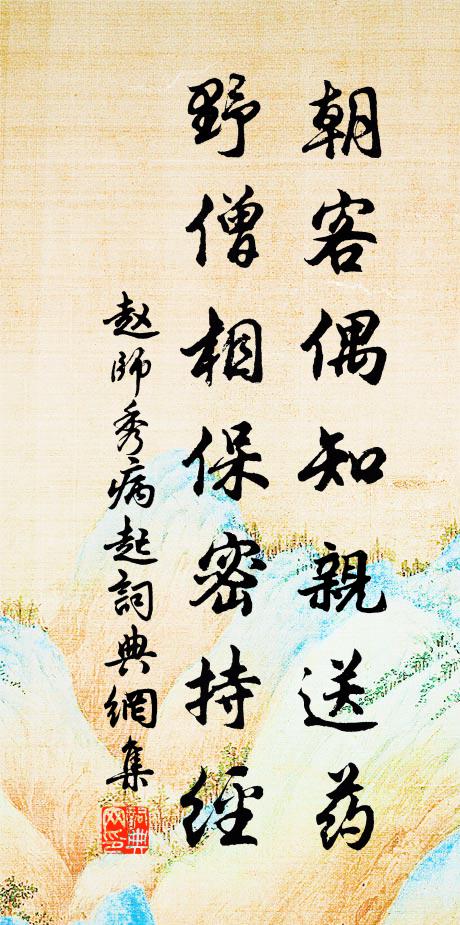 朝客偶知親送药
野僧相保密持經
赵師秀病起詞典網集
詞典网印